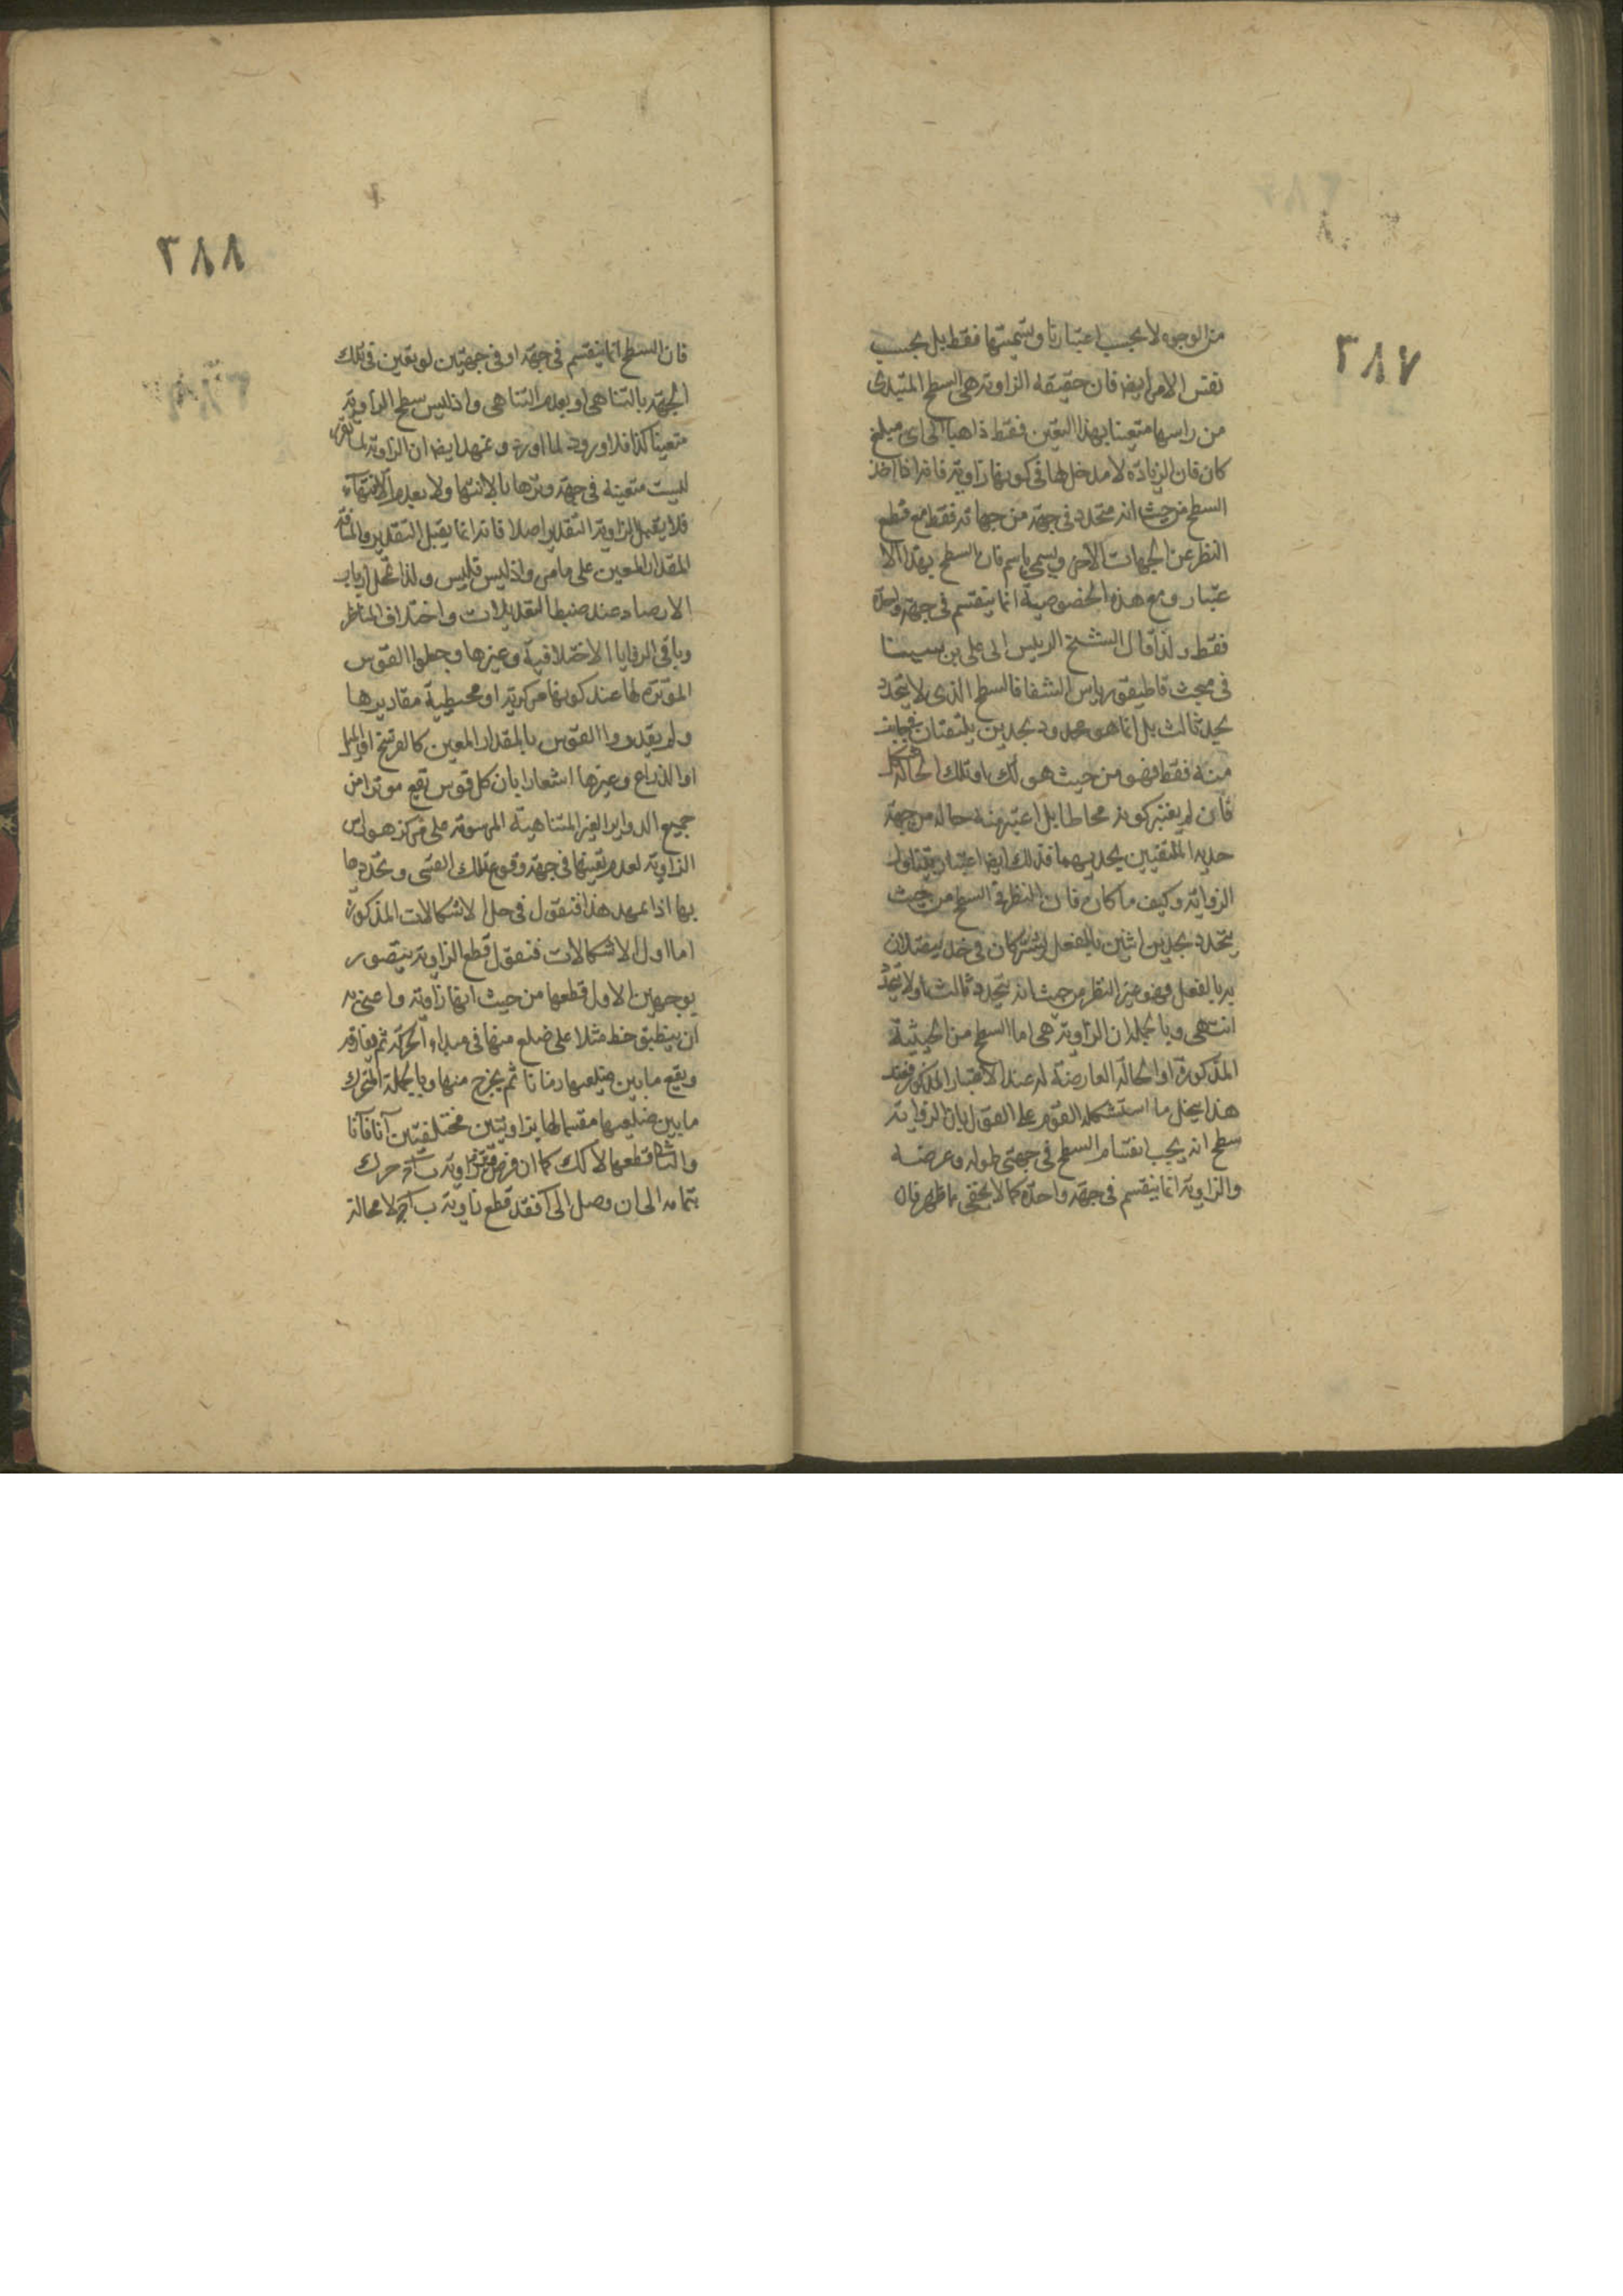 ٣٨٧
من الوجوه لا بحسب اعتبارنا وتسميتها فقط بل بحسب
نفس الامر ايضا فان حقيقة الزاوية هي السطح المبتدى
من راسها متعينا بهذا التعين فقط ذاهبا الى اى مبلغ
كان فان الزيادة لا مدخل لها في كونها زاوية فانه اذا اخذ
السطح من حيث انه متحدد في جهة من جهاته فقط مع قطع
النظر عن الجهات الاخر ويسمى باسم فان السطح بهذا الا
عتبار ومع هذه الخصوصية انما ينقسم في جهة واحدة
فقط ولذا قال الشيخ الرييس ابى على بن سينا
في مبحث قاطيقورياس الشفا فالسطح الذى لا يتحدد
بحد ثالث بل انما هو محدود بحدين يلتقيان
منه فقط فهو من حيث هو كك او تلك الحالة
فان لم يعتبر كونه محاطا بل اعتبر منه حاله من جهة
حديه الملتقيين بحديهما فذلك ايضا اعتبار يتناول
الزواية وكيف ما كان فان النظر في السطح من حيث
يتحدد بحدين اثنين بالفعل يشتركان في حد
به بالفعل فهو غير النظر من حيث انه يتحدد ثالثا ولا يتحدد
انتهى وبالجملة ان الزاوية هى اما السطح من الحيثية
المذكورة او الحالة العارضة له عند الاعتبار المذكور فعند
هذا ينحل ما استشكله القوم على القول بان الزواية
سطح انه يجب انقسام السطح في جهتى طوله وعرضه
والزاوية انما ينقسم في جهة واحدة كما لا يخفى ما ظهر فان
٣٨٨
فان السطح انما ينقسم في جهة او في جهتين لو تعين في تلك
الجهة بالتناهى او بعدم التناهى واذ ليس سطح الزاوية
متعينا كذا فلا ورود لما اورد وتمهد ايضا ان الزاوية لما تقرر
ليست متعينة في جهة وترها لا بالانتها ولا بعدم الانتهاء
فلا يقبل الزاوية التقدير اصلا فانه انما يقبل التقدير
المقدار المعين على ما مر واذ ليس فليس ولذا ارباب
الارصاد عند ضبط التقديرات واختلاف المناظر
وباقى الزوايا الاختلافية وغيرها وجعلوا القوس
الموترة لها عند كونها مركزية او محيطية مقاديرها
ولم يقدروا القوس بالمقدار المعين كالفرسخ او الميل
او الذراع وغيرها اشعارا بان كل قوس تقع موترا من
جميع الدواير الغير المتناهية المرسومة على مركز هو راس
الزاوية لعدم تعينها في جهة وقوع تلك القسى وتحددها
بها اذا تمهد هذا فنقول في حل الاشكالات المذكورة
اما اول الاشكالات فنقول قطع الزاوية يتصور
بوجهين الاول قطعها من حيث انها زاوية واعنى به
ان ينطبق خط مثلا على ضلع منها في مبداء الحركة ثم يفارقه
ويقع ما بين ضلعيها زمانا ثم يخرج منها وبالجملة المتحرك
ما بين ضلعيها مقسما لها بزاويتين مختلفتين آنا فآنا
والثانى قطعها لا كك كما ان فرض زاوية ب ا ج حرك
بتمامه الى ان وصل الى ا فقد قطع زاوية ب ا ج لا محالة